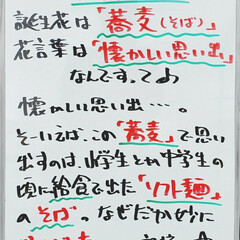 誕生花は「蕎麦(そば)」
花言葉は「懐かしい思い出」
なんです。って♪
懐かしい思い出…。
そーいえば、この「蕎麦」で思い
出すのは、小学生とか中学生の
頃に給食で出た「ソフト麺」
のそば。なぜだか妙に